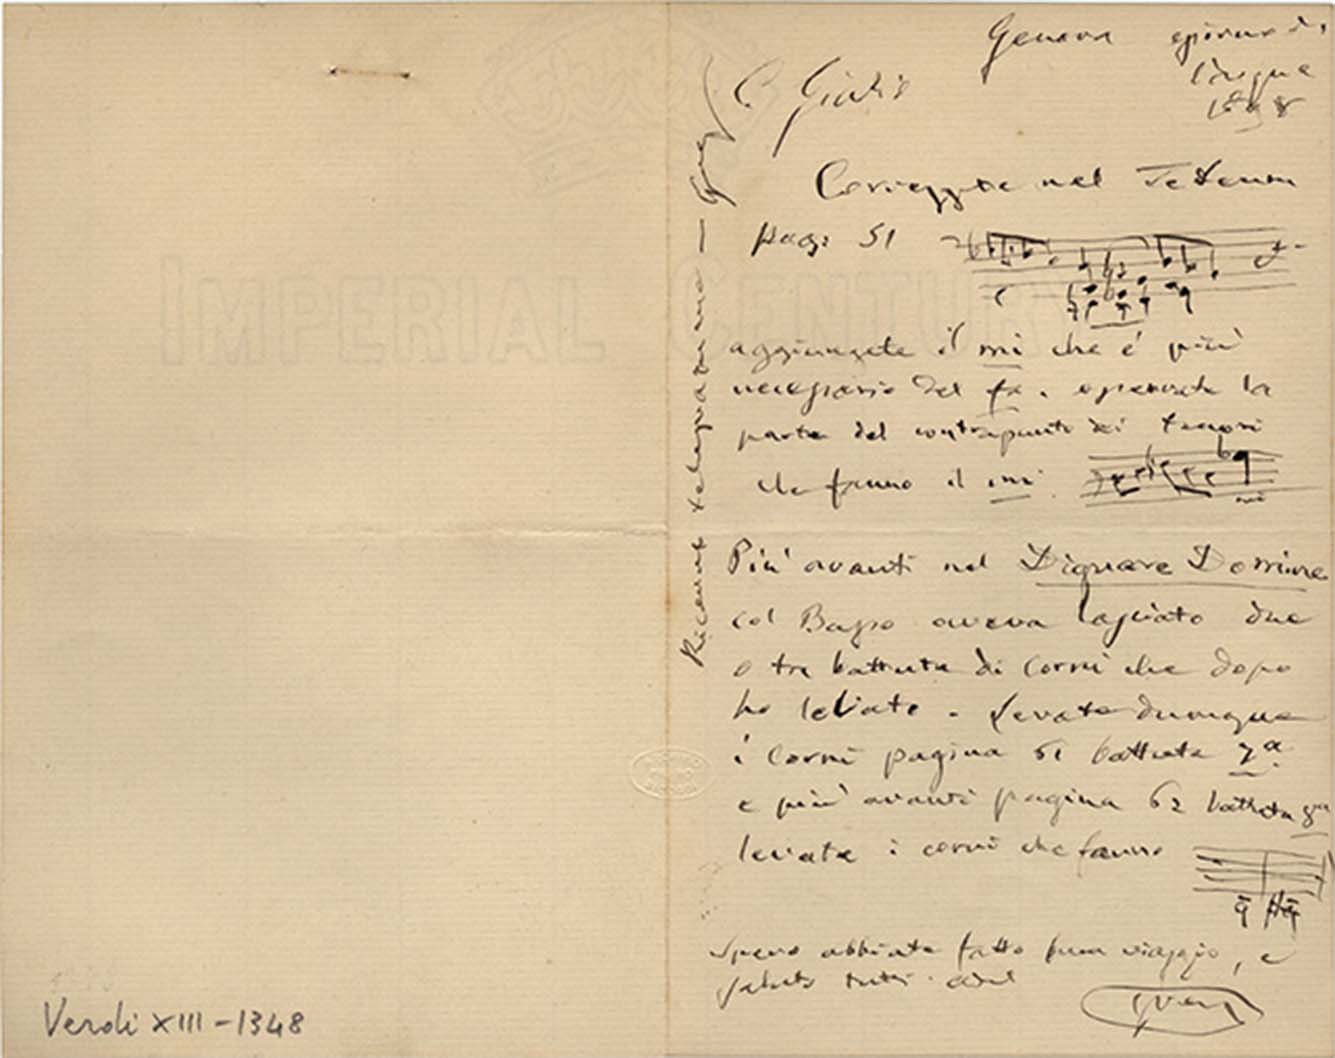 Genova giorno di
cinque
1898
C. Giulio
Correggete nel Tedeum
pag: 51
aggiungete il mi che é più
necessario del fa. e
la
parte del contrapunto dei tenori
che fanno il mi
mi
Più avanti nel Dignare Domine
col Basso aveva lasciato due
o tre battute di Corni che dopo
ho levato. Levate dunque
i Corni pagina 61 battuta 7ª
e più avanti pagina 62 battuta
levate i corni che fanno
Spero abbiate fatto buon viaggio, e
saluto tutti. addio
GVerdi
Ricevuto telegramma —
IMPERIAL CENTURY
Verdi XIII - 1348